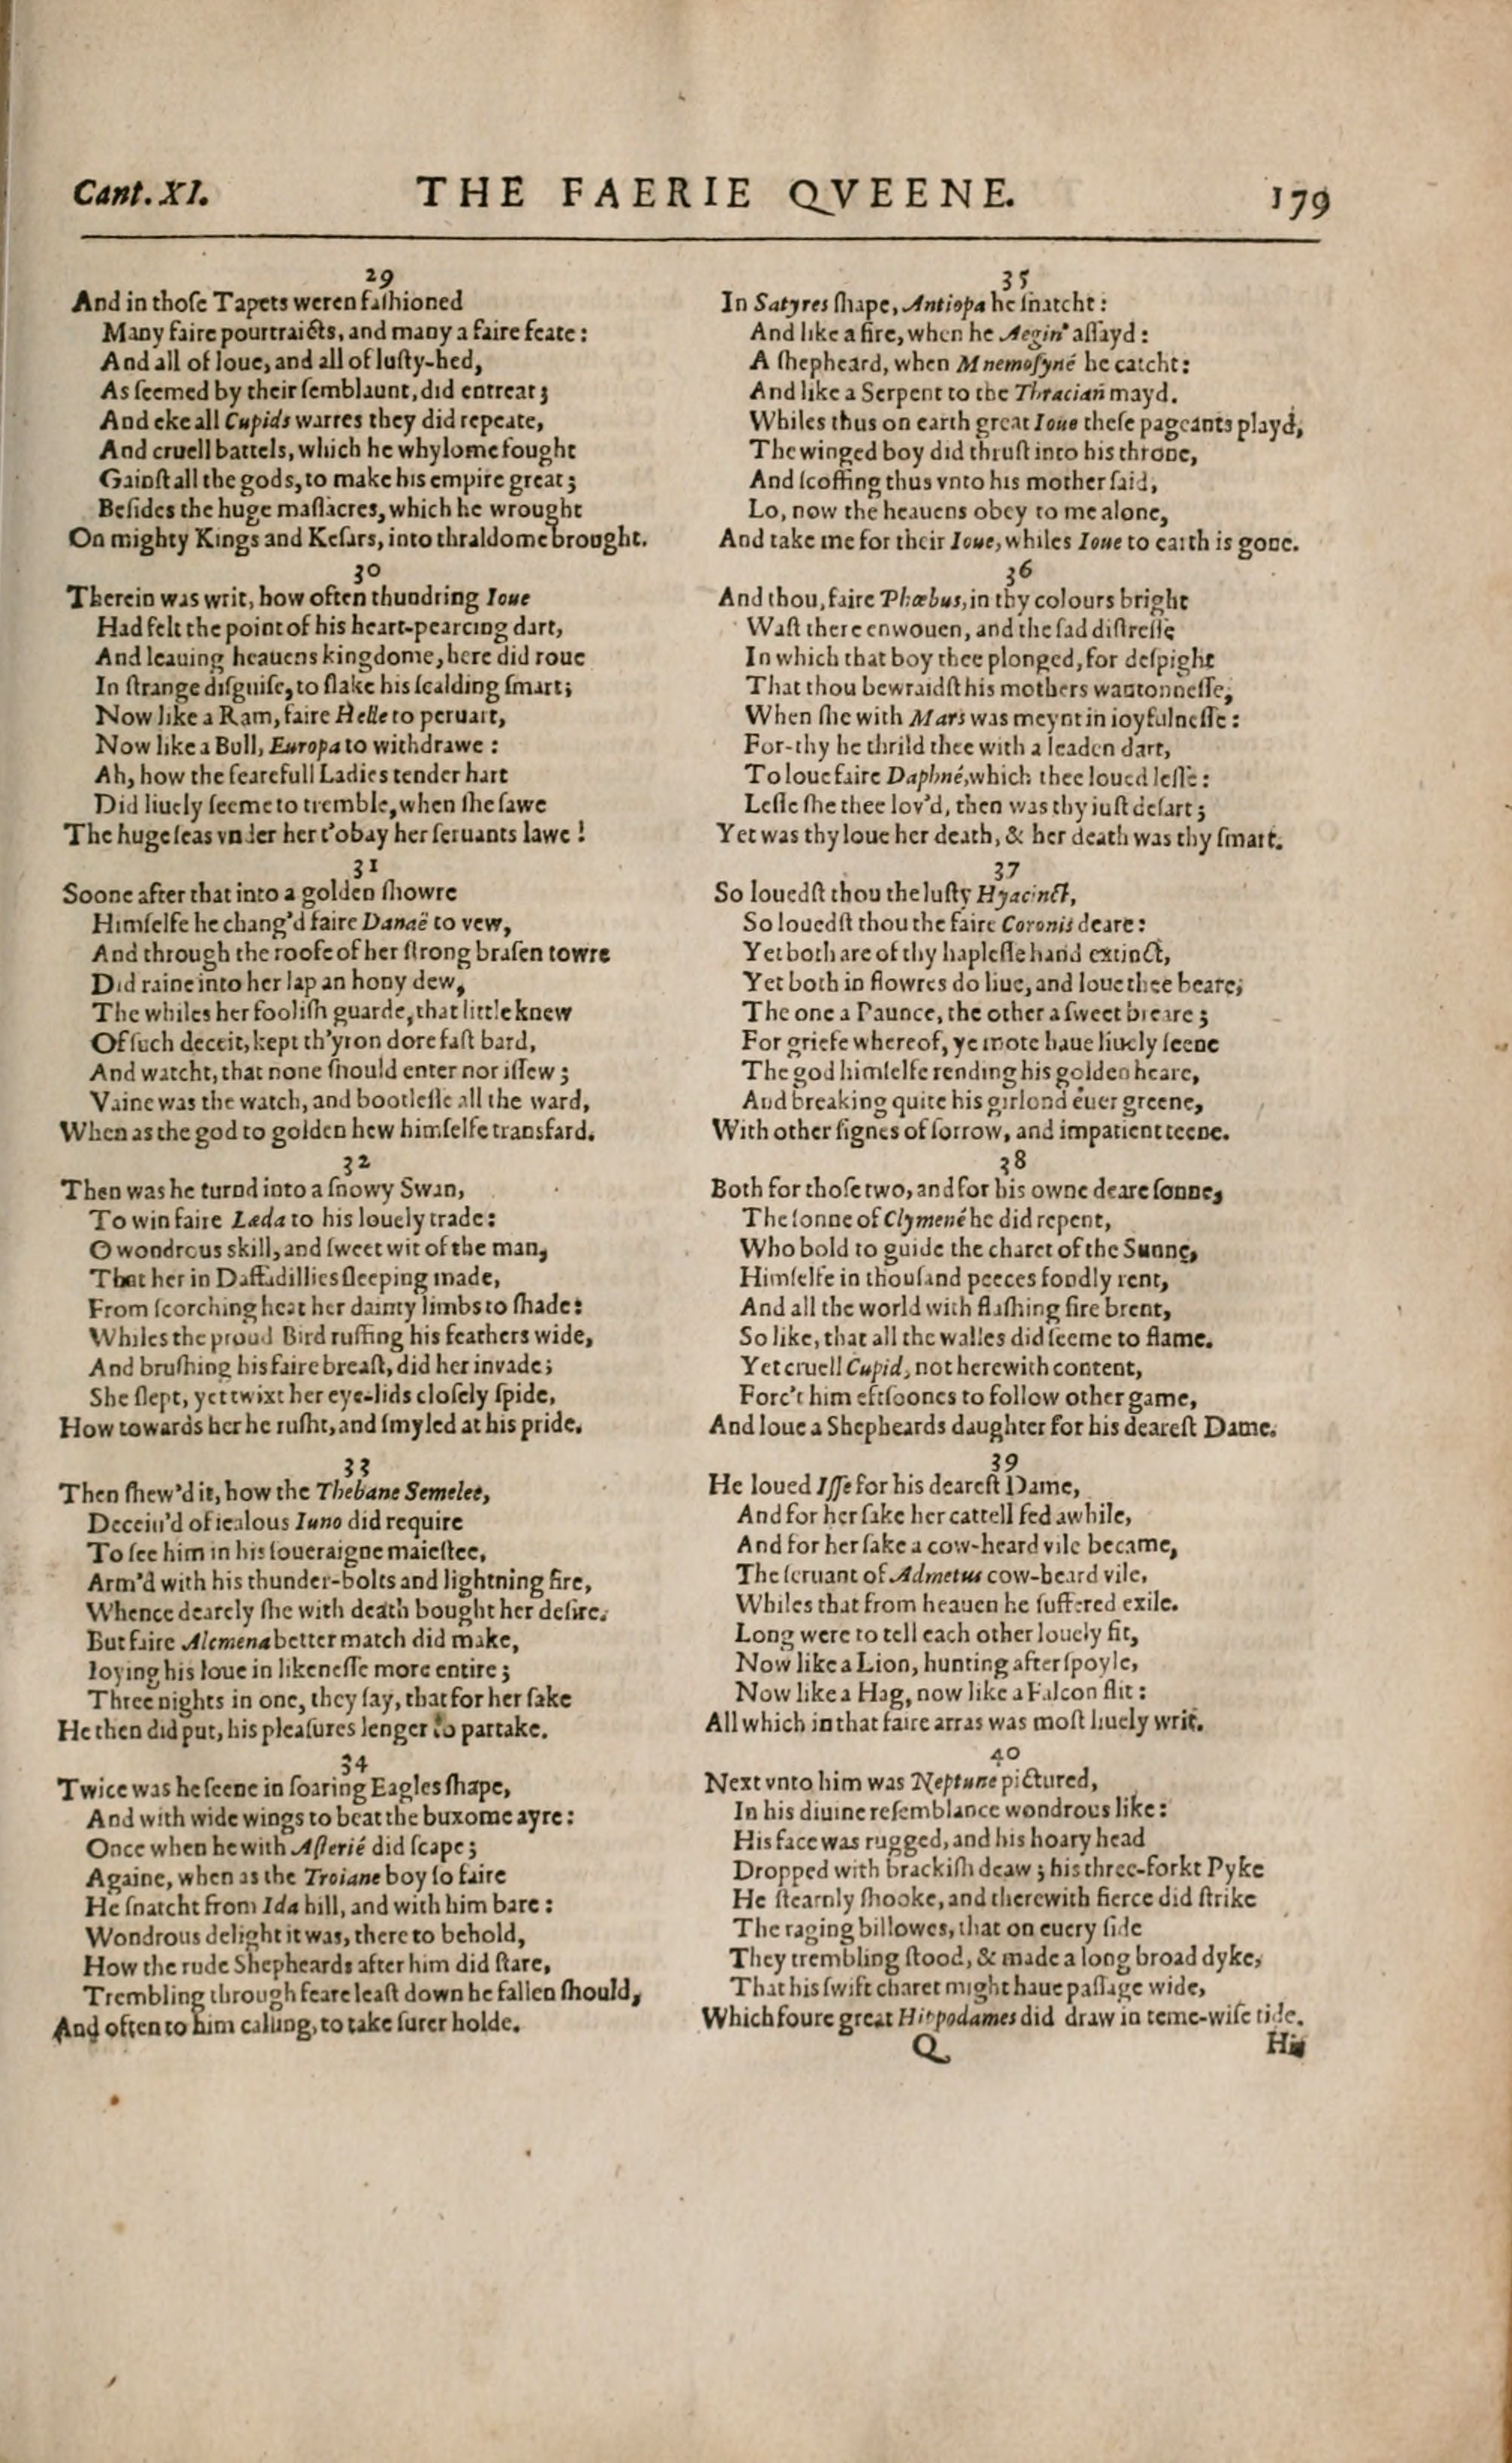 Cant. XI.
THE FAERIE QVEENE.
179
29
And in thoſe Tapets weren faſhioned
Many faire pourtraicts, and many a faire feate:
And all of loue, and all of luſty-hed,
As ſeemed by their ſemblaunt, did entreat;
And eke all Cupids warres they did repeate,
And cruell battels, which he whylome fought
Gainſt all the gods, to make his empire great;
Beſides the huge maſſacres, which he wrought
On mighty Kings and Keſars, into thraldome brought.
30
Therein was writ, how often thundring Ioue
Had felt the point of his heart-pearcing dart,
And leauing heauens kingdome, here did roue
In ſtrange diſguiſe, to ſlake his ſcalding ſmart;
Now like a Ram, faire Helle to peruart,
Now like a Bull, Europa to withdrawe:
Ah, how the fearefull Ladies tender hart
Did liuely ſeeme to tremble, when ſhe ſawe
The huge ſeas vnder her t'obay her ſeruants lawe!
31
Soone after that into a golden ſhowre
Himſelfe he chang'd faire Danaë to vew,
And through the roofe of her ſtrong braſen towre
Did raine into her lap an hony dew,
The whiles her fooliſh guarde, that little knew
Of ſuch deceit, kept th'yron dore faſt bard,
And watcht, that none ſhould enter nor iſſew;
Vaine was the watch, and bootleſſe all the ward,
When as the god to golden hew himſelfe transfard.
32
Then was he turnd into a ſnowy Swan,
To win faire Læda to his louely trade:
O wondrous skill, and ſweet wit of the man,
That her in Daffadillies ſleeping made,
From ſcorching heat her dainty limbs to ſhade:
Whiles the proud Bird ruffing his feathers wide,
And bruſhing his faire breaſt, did her invade;
She ſlept, yet twixt her eye-lids cloſely ſpide,
How towards her he ruſht, and ſmyled at his pride.
33
Then ſhew'd it, how the Thebane Semelee,
Deceiu'd of iealous Iuno did require
To ſee him in his ſoueraigne maieſtee,
Arm'd with his thunder-bolts and lightning fire,
Whence dearely ſhe with death bought her deſire.
But faire Alcmena better match did make,
Ioying his loue in likeneſſe more entire;
Three nights in one, they ſay, that for her ſake
He then did put, his pleaſures lenger to partake.
34
Twice was he ſeene in ſoaring Eagles ſhape,
And with wide wings to beat the buxome ayre:
Once when he with Aſterié did ſcape;
Againe, when as the Troiane boy ſo faire
He ſnatcht from Ida hill, and with him bare:
Wondrous delight it was, there to behold,
How the rude Shepheards after him did ſtare,
Trembling through feare leaſt down he fallen ſhould,
And often to him calling, to take ſurer holde.
35
In Satyres ſhape, Antiopa he ſnatcht:
And like a fire, when he Aegin' aſſayd:
A ſhepheard, when Mnemoſyné he catcht:
And like a Serpent to the Thracian mayd.
Whiles thus on earth great Ioue theſe pageants playd,
The winged boy did thruſt into his throne,
And ſcoffing thus vnto his mother ſaid,
Lo, now the heauens obey to me alone,
And take me for their Ioue, whiles Ioue to earth is gone.
36
And thou, faire Phœbus, in thy colours bright
Waſt there enwouen, and the ſad diſtreſſe
In which that boy thee plonged, for deſpight
That thou bewraidſt his mothers wantonneſſe,
When ſhe with Mars was meynt in ioyfulneſſe:
For-thy he thrild thee with a leaden dart,
To loue faire Daphné, which thee loued leſſe:
Leſſe ſhe thee lov'd, then was thy iuſt deſart;
Yet was thy loue her death, & her death was thy ſmart.
37
So louedſt thou the luſty Hyacinct,
So louedſt thou the faire Coronis deare:
Yet both are of thy hapleſſe hand extinct,
Yet both in flowres do liue, and loue thee beare;
The one a Paunce, the other a ſweet breare;
For griefe whereof, ye mote haue liuely ſeene
The god himſelfe rending his golden heare,
And breaking quite his girlond euer greene,
With other ſignes of ſorrow, and impatient teene.
38
Both for thoſe two, and for his owne deare ſonne,
The ſonne of Clymené he did repent,
Who bold to guide the charet of the Sunne,
Himſelfe in thouſand peeces fondly rent,
And all the world with flaſhing fire brent,
So like, that all the walles did ſeeme to flame.
Yet cruell Cupid, not herewith content,
Forc't him eftſoones to follow other game,
And loue a Shepheards daughter for his deareſt Dame.
39
He loued Iſſe for his deareſt Dame,
And for her ſake her cattell fed awhile,
And for her ſake a cow-heard vile became,
The ſeruant of Admetus cow-heard vile,
Whiles that from heauen he ſuffered exile.
Long were to tell each other louely fit,
Now like a Lion, hunting after ſpoyle,
Now like a Hag, now like a Falcon flit:
All which in that faire arras was moſt liuely writ.
40
Next vnto him was Neptune pictured,
In his diuine reſemblance wondrous like:
His face was rugged, and his hoary head
Dropped with brackiſh deaw; his three-forkt Pyke
He ſtearnly ſhooke, and therewith fierce did ſtrike
The raging billowes, that on euery ſide
They trembling ſtood, & made a long broad dyke,
That his ſwift charet might haue paſſage wide,
Which foure great Hippodames did draw in teme-wiſe tide.
Q
His